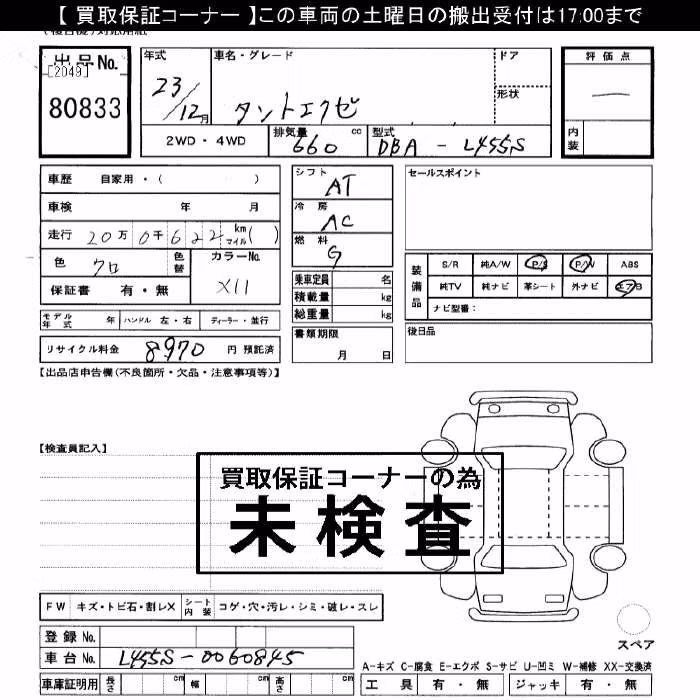 【 買取保証コーナー 】この車両の土曜日の搬出受付は17:00まで
出品No.
[2049]
80833
年式
23/12月
車名・グレード
タントエクゼ
ドア
形状
2WD・4WD
排気量 660 cc
型式 DBA - L455S
評価点
内装
車歴 自家用・( )
車検 年 月
走行 20万0千622 km マイル ( )
色 クロ
色替
カラーNo. X11
保証書 有・無
シフト AT
冷房 AC
燃料 G
乗車定員 名
積載量 kg
総重量 kg
書類期限
月 日
セールスポイント
装備品
S/R 純A/W P/S P/W ABS
純TV 純ナビ 革シート 外ナビ エアB
ナビ型番:
後日品
モデル年式 年 ハンドル 左・右 ディーラー・並行
リサイクル料金 8970 円 預託済
【出品店申告欄(不良箇所・欠品・注意事項等)】
【検査員記入】
買取保証コーナーの為
未検査
FW キズ・トビ石・割レX
シート内装 コゲ・穴・汚レ・シミ・破レ・スレ
登録 No.
車台 No. L455S-0060845
車庫証明用 長さ cm 幅 cm 高さ cm
スペア
A-キズ C-腐食 E-エクボ S-サビ U-凹ミ W-補修 XX-交換済
工具 有・無 ジャッキ 有・無